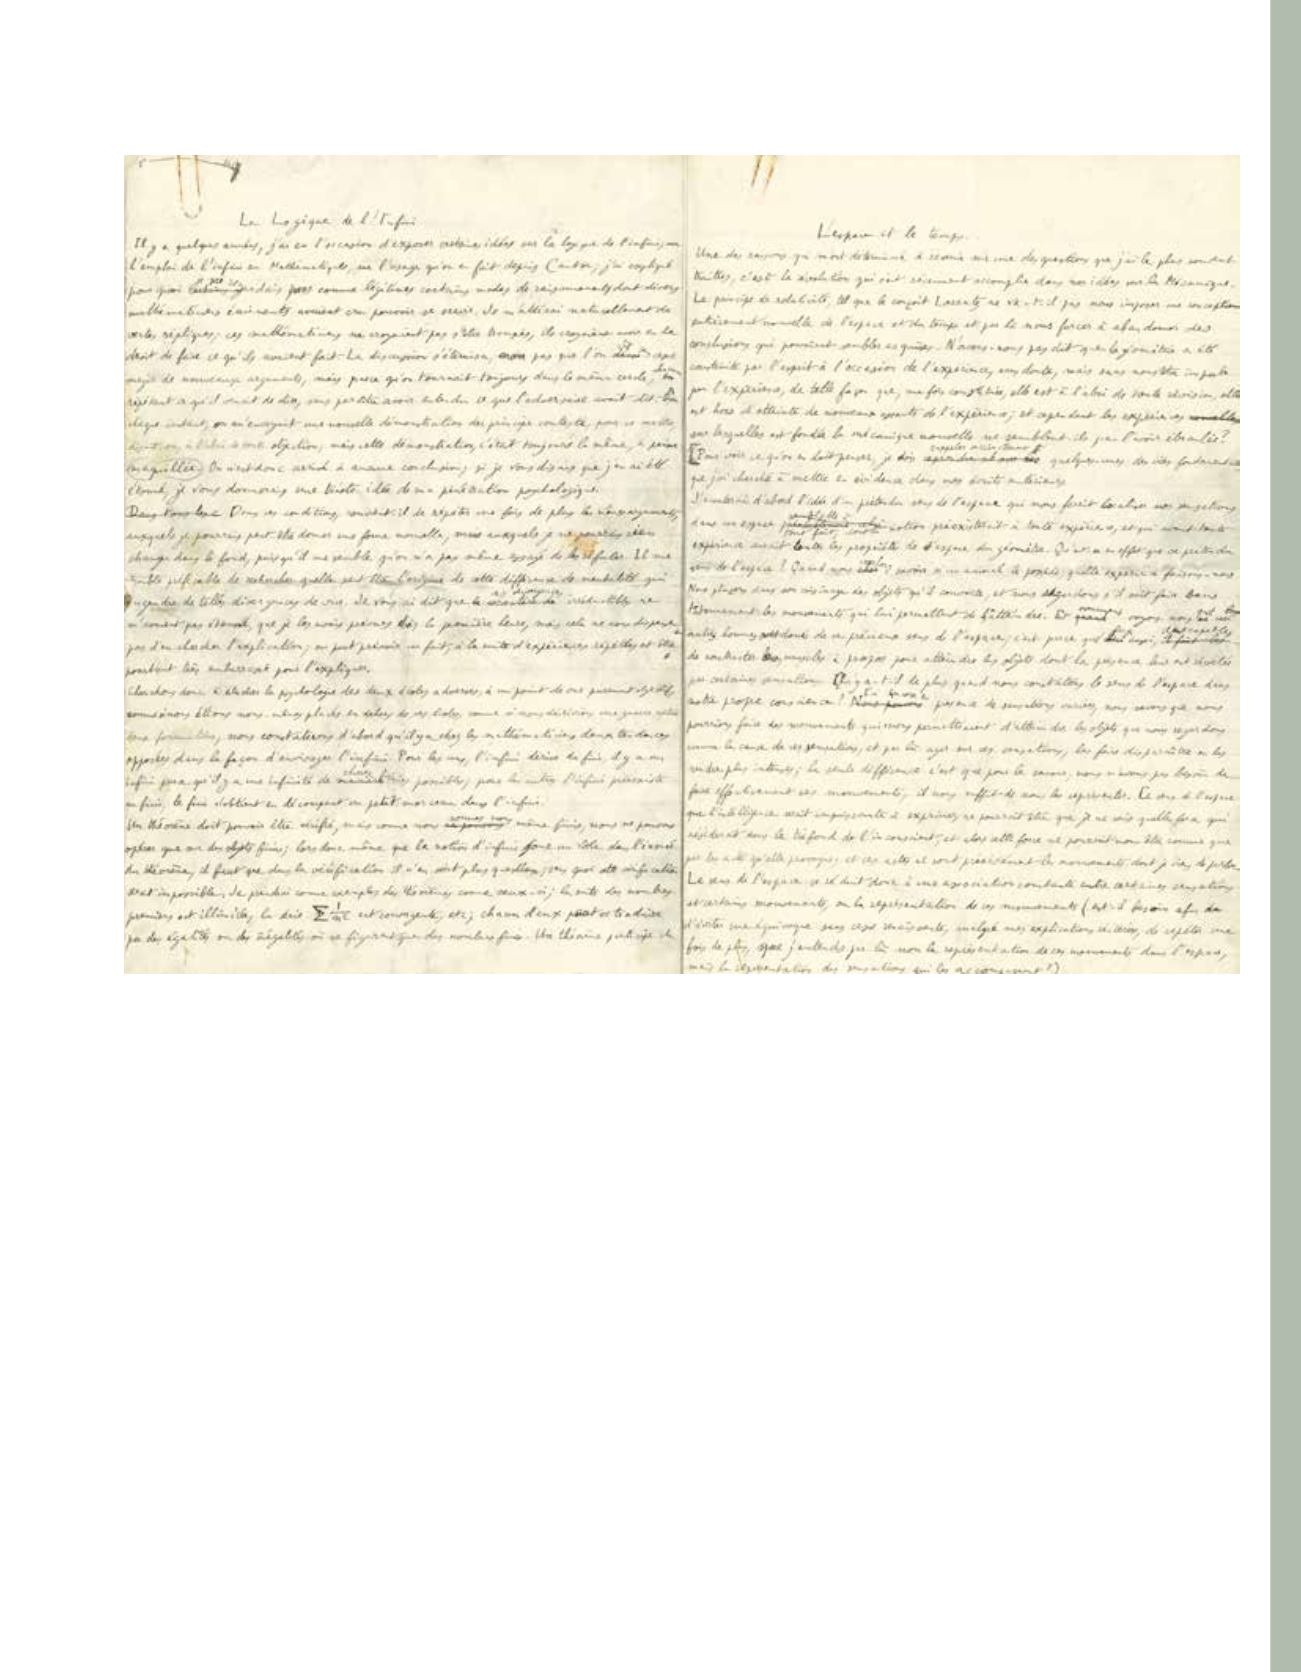 La Logique de l'Infini
Il y a quelques années, j'ai eu l'occasion d'exposer certaines idées sur la logique de l'infini; sur
l'emploi de l'infini en Mathématiques, sur l'usage qu'on en fait depuis Cantor; j'ai expliqué
pourquoi je ne regardais pas comme légitimes certains modes de raisonnements dont divers
mathématiciens éminents avaient cru pouvoir se servir. Je m'attirai naturellement de
vertes répliques; ces mathématiciens ne croyaient pas s'être trompés, ils croyaient avoir eu le
droit de faire ce qu'ils avaient fait. La discussion s'éternisa, non pas que l'on sans
de nouveaux arguments, mais parce qu'on tournait toujours dans le même cercle, chacun
répétant ce qu'il venait de dire, sans paraître avoir entendu ce que l'adversaire avait dit. A
chaque instant, on m'envoyait une nouvelle démonstration du principe contesté, pour se mettre,
disait-on, à l'abri de toute objection; mais cette démonstration, c'était toujours la même, à peine
maquillée. On n'est donc arrivé à aucune conclusion; si je vous disais que j'en ai été
étonné, je vous donnerais une triste idée de ma pénétration psychologique.
Dans ces conditions, convient-il de répéter une fois de plus les mêmes arguments,
auxquels je pourrais peut-être donner une forme nouvelle, mais auxquels je ne pourrais rien
changer dans le fond, puisqu'il me semble qu'on n'a pas même essayé de les réfuter. Il me
semble préférable de rechercher quelle peut être l'origine de cette différence de mentalité qui
engendre de telles divergences de vue. Je vous ai dit que ces divergences irréductibles ne
m'avaient pas étonné, que je les avais prévues dès la première heure, mais cela ne nous dispense
pas d'en chercher l'explication; on peut prévoir un fait, à la suite d'expériences répétées et être
pourtant très embarrassé pour l'expliquer.
Cherchons donc à étudier la psychologie des deux écoles adverses, à un point de vue purement objectif,
comme si nous étions nous-mêmes placés en dehors de ces écoles, comme si nous décrivions une guerre entre
deux fourmilières, nous constaterons d'abord qu'il y a chez les mathématiciens deux tendances
opposées dans la façon d'envisager l'infini. Pour les uns, l'infini dérive du fini, il y a un
infini parce qu'il y a une infinité de choses finies possibles; pour les autres l'infini préexiste
au fini, le fini s'obtient en découpant un petit morceau dans l'infini.
Un théorème doit pouvoir être vérifié, mais comme nous sommes nous-mêmes finis, nous ne pouvons
opérer que sur des objets finis; lors donc même que la notion d'infini joue un rôle dans l'énoncé
du théorème, il faut que dans la vérification il n'en soit plus question; sans quoi cette vérification
serait impossible. Je prendrai comme exemples des théorèmes comme ceux-ci; la suite des nombres
premiers est illimitée, la série Σ 1/n² est convergente, etc; chacun d'eux peut se traduire
par des égalités ou des inégalités où ne figurent que des nombres finis. Un théorème participe de
L'espace et le temps.
Une des raisons qui m'ont déterminé à revenir sur une des questions que j'ai le plus souvent
traitées, c'est la révolution qui s'est récemment accomplie dans nos idées sur la Mécanique.
Le principe de relativité, tel que le conçoit Lorentz ne va-t-il pas nous imposer une conception
entièrement nouvelle de l'espace et du temps et par là nous forcer à abandonner des
conclusions qui pouvaient sembler acquises. N'avons-nous pas dit que la géométrie a été
construite par l'esprit à l'occasion de l'expérience, sans doute, mais sans nous être imposée
par l'expérience, de telle façon que, une fois constituée, elle est à l'abri de toute révision, elle
est hors d'atteinte de nouveaux assauts de l'expérience; et cependant les expériences
sur lesquelles est fondée la mécanique nouvelle ne semblent-ils pas l'avoir ébranlée?
Pour voir ce qu'on en doit penser, je dois rappeler succinctement quelques-unes des idées fondamentales
que j'ai cherché à mettre en évidence dans mes écrits antérieurs.
J'écarterai d'abord l'idée d'un prétendu sens de l'espace qui nous ferait localiser nos sensations
dans un espace tout fait, dont la notion préexisterait à toute expérience, et qui avant toute
expérience aurait toutes les propriétés de l'espace du géomètre. Qu'est-ce en effet que ce prétendu
sens de l'espace? Quand nous voulons savoir si un animal le possède, quelle expérience faisons-nous.
Nous plaçons dans son voisinage des objets qu'il convoite, et nous regardons s'il sait faire sans
tâtonnement les mouvements qui lui permettent de l'atteindre. Et comment voyons-nous que les
autres hommes sont doués de ce précieux sens de l'espace; c'est parce qu'eux aussi, sont capables
de contracter les muscles à propos pour atteindre les objets dont la présence leur est révélée
par certaines sensations. Qu'y a-t-il de plus quand nous constatons le sens de l'espace dans
notre propre conscience? Ici encore en présence de sensations variées, nous savons que nous
pourrions faire des mouvements qui nous permettraient d'atteindre les objets que nous regardons
comme la cause de ces sensations, et par là agir sur ces sensations, les faire disparaître ou les
rendre plus intenses; la seule différence c'est que pour le savoir, nous n'avons pas besoin de
faire effectivement ces mouvements, il nous suffit de nous les représenter. Ce sens de l'espace
que l'intelligence serait impuissante à exprimer, ne pourrait être que je ne sais quelle force qui
résiderait dans le tréfond de l'inconscient; et alors cette force ne pourrait nous être connue que
par les actes qu'elle provoque; et ces actes ce sont précisément les mouvements dont je viens de parler.
Le sens de l'espace se réduit donc à une association constante entre certaines sensations
et certains mouvements, ou la représentation de ces mouvements (est-il besoin afin de
d'éviter une équivoque sans cesse renaissante, malgré mes explications réitérées, de répéter une
fois de plus, que j'entends par là non la représentation de ces mouvements dans l'espace,
mais la représentation des sensations qui les accompagnent?)